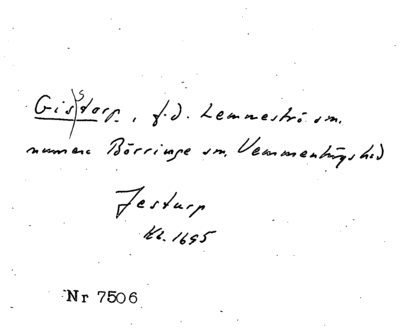 Gisstorp, f.d. Lemmeströ sn.
numera Börringe sn, Vemmenhögs hd
Jestorp
Kb. 1695
Nr 7506